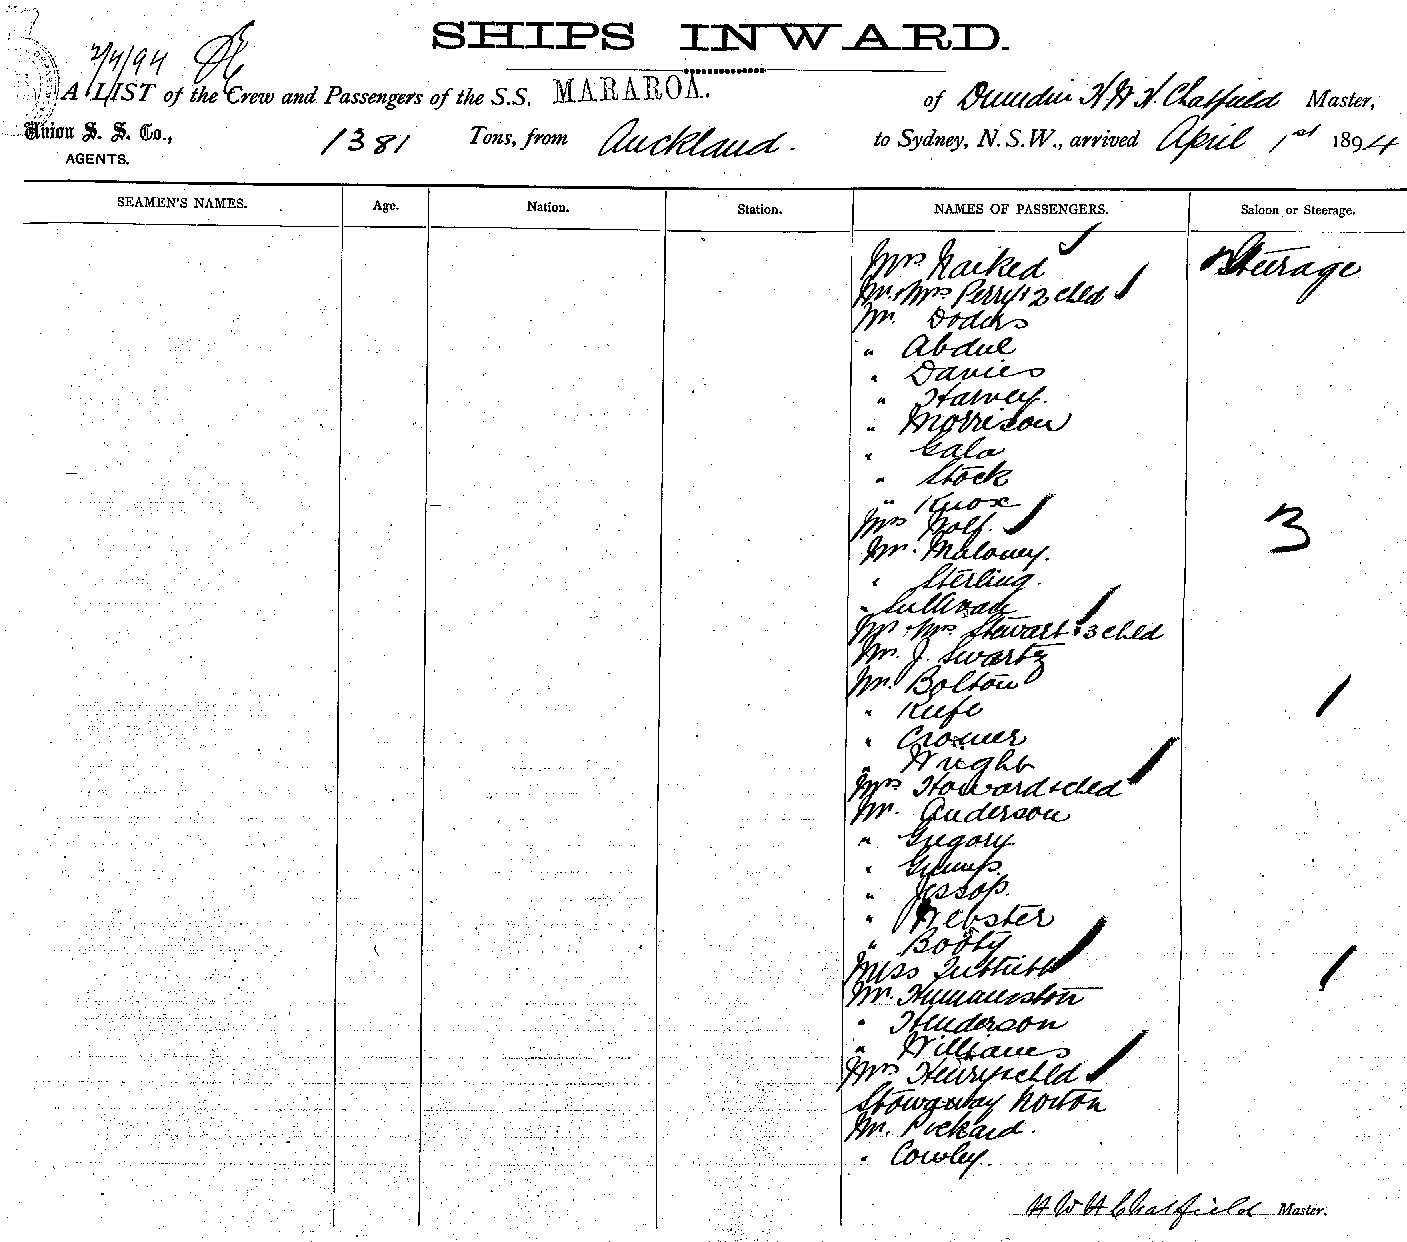 SHIPS INWARD.
2/4/94
A LIST of the Crew and Passengers of the S.S. MARAROA. of Dunedin H W H Chatfield Master,
Union S. S. Co., 1381 Tons, from Auckland. to Sydney, N.S.W., arrived April 1st 1894
AGENTS.
SEAMEN'S NAMES. Age. Nation. Station. NAMES OF PASSENGERS. Saloon or Steerage.
Mrs Steerage
Mr. & Mrs Perry & 2 chld
Mr.
" Abdul
" Davies
" Harvey.
" Morrison
" Gala
" Stock
" Knox
Mrs 3
Mr. Maloney.
" Sterling.
" Sullivan
Mr & Mrs Stewart & 3 chld
Mr. J. Swartz
Mr. Bolton
" Keefe
" Cromer
" Wright
Mrs Howard & chld
Mr. Anderson
" Gregory
"
" Jessop.
" Webster
" Booty
Miss
Mr.
" Henderson
" Williams
Mrs Henry & chld
Stowaway Norton
Mr. Pickard.
" Cowley.
H W H Chatfield Master.